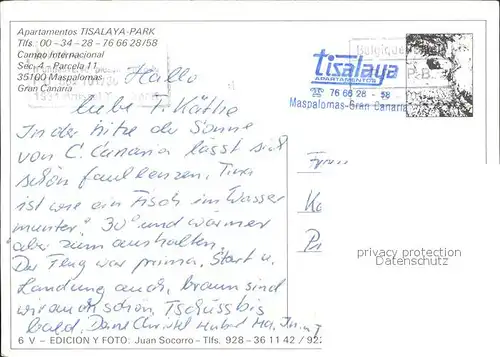 Apartamentos TISALAYA-PARK
Tlfs. 00 - 34 - 28 - 76 66 28/58
Campo Internacional
Sec. 4 - Parcela 11
35100 Maspalomas
Gran Canaria
Belgique
P-B-
tisalaya
APARTAMENTOS
76 66 28 - 58
Maspalomas-Gran Canaria
Hallo
liebe T. Käthe
In der Hitze der Sonne
von G. Canaria lässt sich
schön faulenzen. Timo
ist wie ein Fisch im Wasser
munter. 30° und wärmer
aber zum aushalten.
Der Flug war prima, Start u.
Landung auch, braun sind
wir auch schon, Tschüss bis
bald. Deine Christel
privacy protection
Datenschutz
6 V - EDICION Y FOTO: Juan Socorro - Tlfs. 928 - 36 11 42 / 92